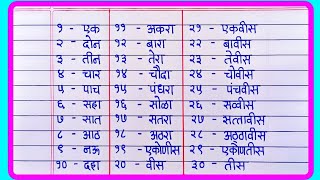 १ - एक ११ - अकरा २१ - एकवीस
२ - दोन १२ - बारा २२ - बावीस
३ - तीन १३ - तेरा २३ - तेवीस
४ - चार १४ - चौदा २४ - चोवीस
५ - पाच १५ - पंधरा २५ - पंचवीस
६ - सहा १६ - सोळा २६ - सव्वीस
७ - सात १७ - सतरा २७ - सत्तावीस
८ - आठ १८ - अठरा २८ - अठ्ठावीस
९ - नऊ १९ - एकोणीस २९ - एकोणतीस
१० - दहा २० - वीस ३० - तीस